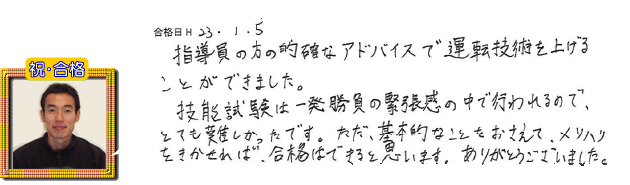 合格日 H 23.1.5
指導員の方の的確なアドバイスで運転技術を上げる
ことができました。
祝・合格
技能試験は一発勝負の緊張感の中で行われるので、
とても難しかったです。ただ、基本的なことをおさえて、メリハリ
をきかせれば、合格はできると思います。ありがとうございました。